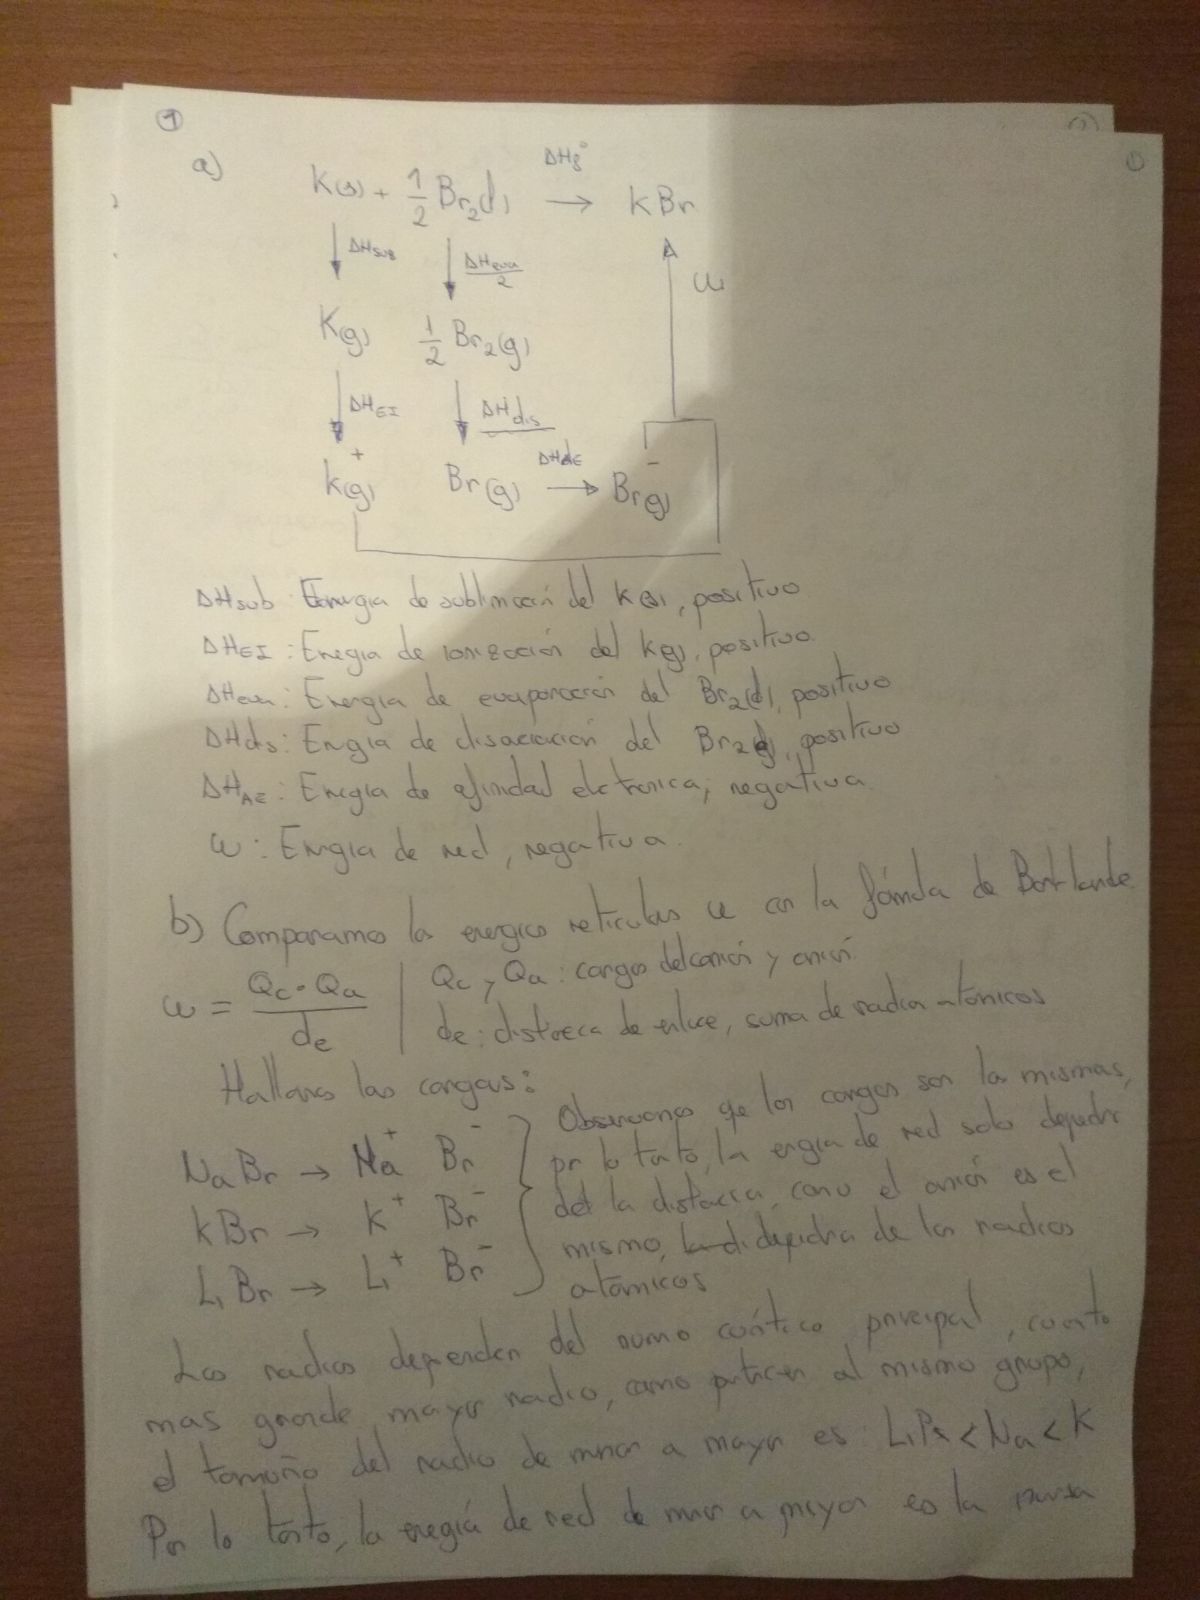 1
a)
K(s) + 1/2 Br2(l) → ΔHf° KBr
ΔHsub ΔHeva/2 U
K(g) 1/2 Br2(g)
ΔHEI ΔHdis
K+(g) Br(g) → ΔHAE Br-(g)
ΔHsub: Energia de sublimación del K(s), positivo
ΔHEI: Enegia de ionización del K(g), positivo.
ΔHeva: Energia de evaporación del Br2(l), positivo
ΔHdis: Engia de disociación del Br2(g), positivo
ΔHAE: Enegia de afinidad electronica, negativa.
U: Engia de red, negativa.
b) Comparamos la energias reticulas U con la fórmula de
U = Qc · Qa / de | Qc y Qa: cargas del catión y anión.
de: distancia de enlace, suma de radios atónicos
Hallamos las cargas:
NaBr → Na+ Br-
KBr → K+ Br-
LiBr → Li+ Br-
Observamos qe las cargas son la mismas,
por lo tanto, la engia de red solo dependr
det la distancia, como el anión es el
mismo, dependra de los radios
atómicos
Los radios dependen del numo cuántico principal, cuanto
mas grande mayor radio, como al mismo grupo,
el tamaño del radio de menor a mayor es: Li < Na < K
Por lo tanto, la enegiá de red de menor a mayor es la